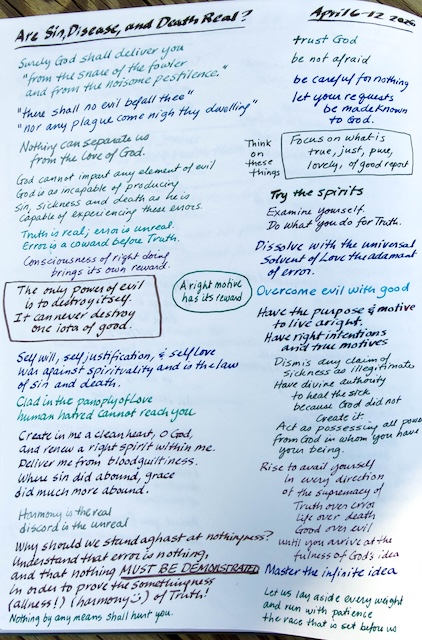 Are Sin, Disease, and Death Real?
Surely God shall deliver you
"from the snare of the fowler
and from the noisome pestilence."
"there shall no evil befall thee"
"nor any plague come nigh thy dwelling"
Nothing can separate us
from the Love of God.
God cannot impart any element of evil
God is as incapable of producing
sin, sickness and death as he is
capable of experiencing these errors.
Truth is real; error is unreal.
Error is a coward before Truth.
Consciousness of right doing
brings its own reward.
The only power of evil
is to destroy itself.
It can never destroy
one iota of good.
A right motive
has its reward
Self will, self justification, & self love
war against spirituality and is the law
of sin and death.
Clad in the panoply of Love
human hatred cannot reach you
Create in me a clean heart, O God,
and renew a right spirit within me.
Deliver me from bloodguiltiness.
Where sin did abound, grace
did much more abound.
Harmony is the real
discord is the unreal
Why should we stand aghast at nothingness?
Understand that error is nothing,
and that nothing MUST BE DEMONSTRATED
in order to prove the somethingness
(allness!) (harmony :)) of Truth!
Nothing by any means shall hurt you.
April 6-12 2026
trust God
be not afraid
be careful for nothing
let your requests
be made known
to God.
Think
on
these
things
Focus on what is
true, just, pure,
lovely, of good report
Try the spirits
Examine yourself.
Do what you do for Truth.
Dissolve with the universal
Solvent of Love the adamant
of error.
Overcome evil with good
Have the purpose & motive
to live aright.
Have right intentions
and true motives
Dismis any claim of
sickness as illegitimate
Have divine authority
to heal the sick
because God did not
Create it.
Act as possessing all power
from God in whom you have
your being.
Rise to avail yourself
in every direction
of the supremacy of
Truth over error
life over death
Good over evil
until you arrive at the
fulness of God's idea
Master the infinite idea
Let us lay aside every weight
and run with patience
the race that is set before us